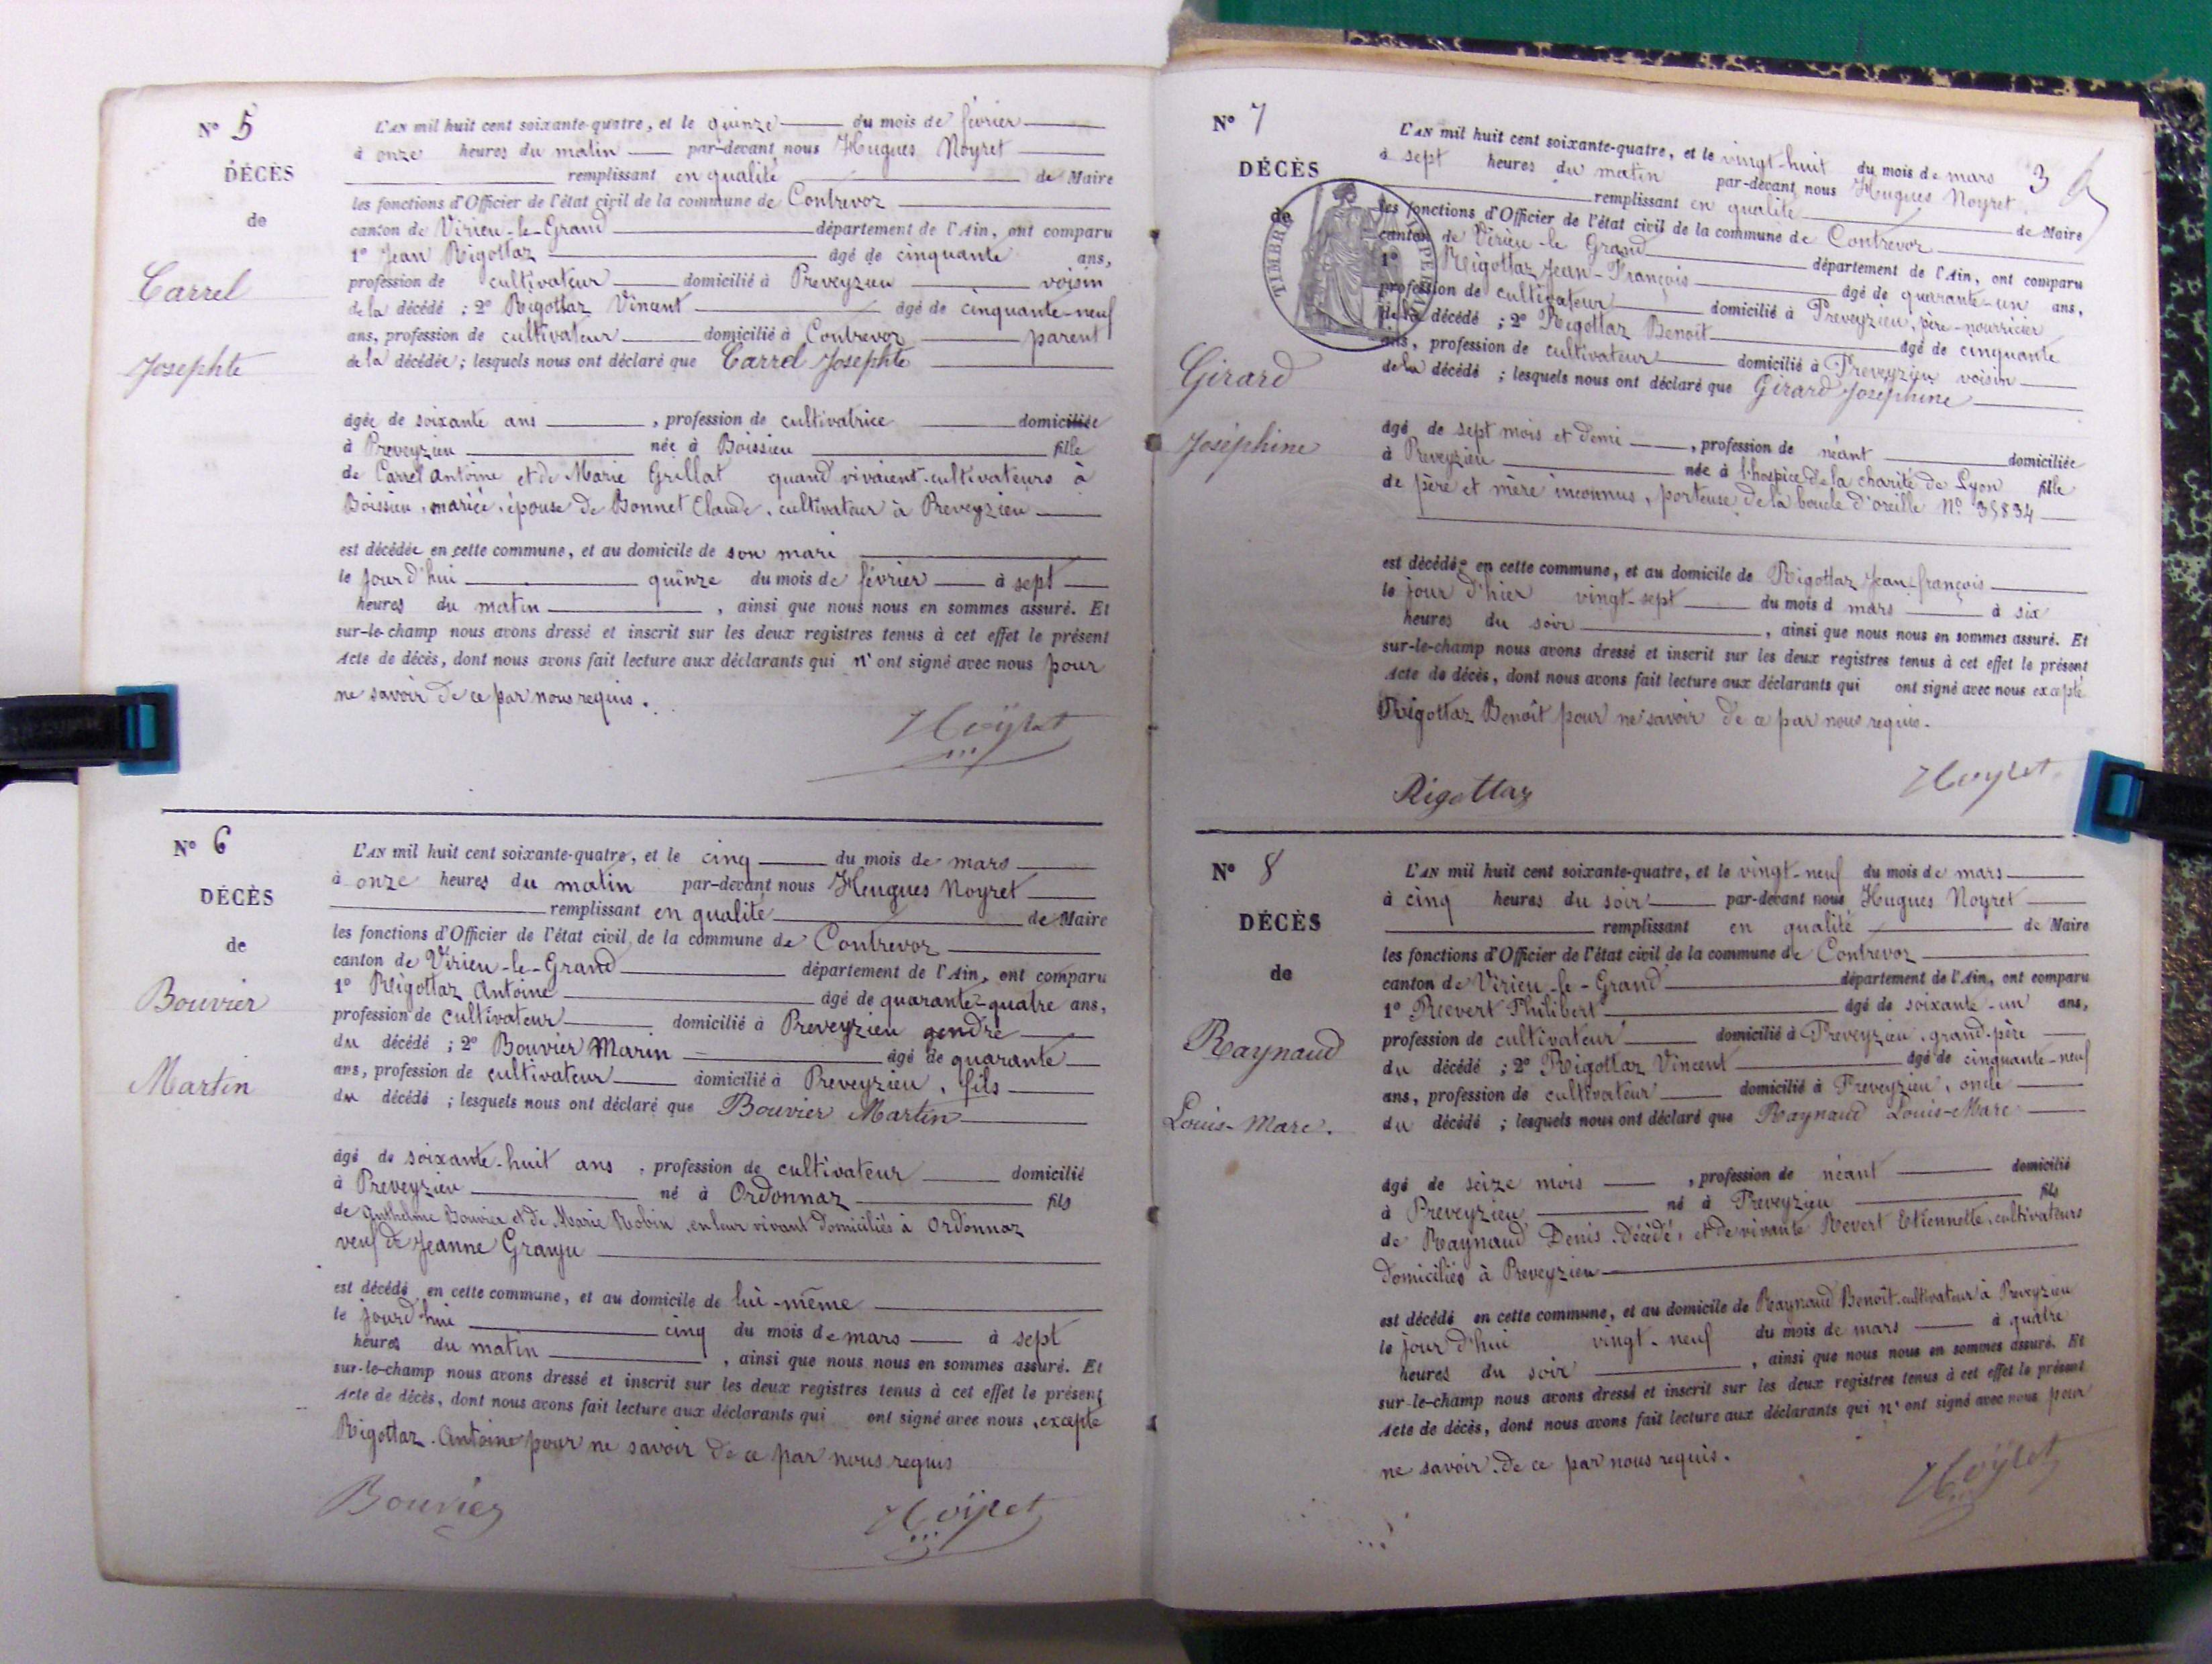 N° 5
DÉCÈS
de
Carrel
Josephte
L'AN mil huit cent soixante-quatre, et le quinze du mois de février
à onze heures du matin par-devant nous Hugues Noyret
remplissant en qualité de Maire
les fonctions d'Officier de l'état civil de la commune de Contrevoz
canton de Virieu-le-Grand département de l'Ain, ont comparu
1° Jean Rigottaz âgé de cinquante ans,
profession de cultivateur domicilié à Preveyzieu voisin
de la décédé ; 2° Rigottaz Vincent âgé de cinquante-neuf
ans, profession de cultivateur domicilié à Contrevoz parent
de la décédée ; lesquels nous ont déclaré que Carrel Josephte
âgée de soixante ans , profession de cultivatrice domiciliée
à Preveyzieu née à Boissieu fille
de Carrel Antoine et de Marie Grillat quand vivaient cultivateurs à
Boissieu, mariée, épouse de Bonnet Claude, cultivateur à Preveyzieu
est décédée en cette commune, et au domicile de son mari
le jour d'hui quinze du mois de février à sept
heures du matin , ainsi que nous nous en sommes assuré. Et
sur-le-champ nous avons dressé et inscrit sur les deux registres tenus à cet effet le présent
Acte de décès, dont nous avons fait lecture aux déclarants qui n'ont signé avec nous pour
ne savoir de ce par nous requis.
Noÿret
N° 6
DÉCÈS
de
Bouvier
Martin
L'AN mil huit cent soixante-quatre, et le cinq du mois de mars
à onze heures du matin par-devant nous Hugues Noyret
remplissant en qualité de Maire
les fonctions d'Officier de l'état civil de la commune de Contrevoz
canton de Virieu-le-Grand département de l'Ain, ont comparu
1° Rigottaz Antoine âgé de quarante-quatre ans,
profession de cultivateur domicilié à Preveyzieu gendre
du décédé ; 2° Bouvier Marin âgé de quarante
ans, profession de cultivateur domicilié à Preveyzieu, fils
du décédé ; lesquels nous ont déclaré que Bouvier Martin
âgé de soixante-huit ans , profession de cultivateur domicilié
à Preveyzieu né à Ordonnaz fils
de Anthelme Bouvier et de Marie Robin, en leur vivant domiciliés à Ordonnaz
veuf de Jeanne Granju
est décédé en cette commune, et au domicile de lui-même
le jourd'hui cinq du mois de mars à sept
heures du matin , ainsi que nous nous en sommes assuré. Et
sur-le-champ nous avons dressé et inscrit sur les deux registres tenus à cet effet le présent
Acte de décès, dont nous avons fait lecture aux déclarants qui ont signé avec nous, excepté
Rigottaz Antoine pour ne savoir de ce par nous requis
Bouvier Noÿret
N° 7
3
DÉCÈS
de
TIMBRE IMPÉRIAL
Girard
Joséphine
L'AN mil huit cent soixante-quatre, et le vingt-huit du mois de mars
à sept heures du matin par-devant nous Hugues Noyret
remplissant en qualité de Maire
les fonctions d'Officier de l'état civil de la commune de Contrevoz
canton de Virieu-le Grand département de l'Ain, ont comparu
1° Rigottaz Jean-François âgé de quarante-un ans,
profession de cultivateur domicilié à Preveyzieu, père-nourricier
de la décédé ; 2° Rigottaz Benoît âgé de cinquante
ans, profession de cultivateur domicilié à Preveyzieu voisin
de la décédé ; lesquels nous ont déclaré que Girard Joséphine
âgé de sept mois et demi , profession de néant domiciliée
à Preveyzieu née à l'hospice de la charité de Lyon fille
de père et mère inconnus, porteuse de la boucle d'oreille N° 35834
est décédée en cette commune, et au domicile de Rigottaz Jean-françois
le jour d'hier vingt-sept du mois d mars à six
heures du soir , ainsi que nous nous en sommes assuré. Et
sur-le-champ nous avons dressé et inscrit sur les deux registres tenus à cet effet le présent
Acte de décès, dont nous avons fait lecture aux déclarants qui ont signé avec nous excepté
Rigottaz Benoît pour ne savoir de ce par nous requis.
Rigottaz Noyret
N° 8
DÉCÈS
de
Raynaud
Louis-Marc.
L'AN mil huit cent soixante-quatre, et le vingt-neuf du mois de mars
à cinq heures du soir par-devant nous Hugues Noyret
remplissant en qualité de Maire
les fonctions d'Officier de l'état civil de la commune de Contrevoz
canton de Virieu-le-Grand département de l'Ain, ont comparu
1° Revert Philibert âgé de soixante-un ans,
profession de cultivateur domicilié à Preveyzieu, grand-père
du décédé ; 2° Rigottaz Vincent âgé de cinquante-neuf
ans, profession de cultivateur domicilié à Preveyzieu, oncle
du décédé ; lesquels nous ont déclaré que Raynaud Louis-Marc
âgé de seize mois , profession de néant domicilié
à Preveyzieu né à Preveyzieu fils
de Raynaud Denis décédé, et de vivante Revert Etiennette, cultivateurs
domiciliés à Preveyzieu
est décédé en cette commune, et au domicile de Raynaud Benoît, cultivateur à Preveyzieu
le jour d'hui vingt-neuf du mois de mars à quatre
heures du soir , ainsi que nous nous en sommes assuré. Et
sur-le-champ nous avons dressé et inscrit sur les deux registres tenus à cet effet le présent
Acte de décès, dont nous avons fait lecture aux déclarants qui n'ont signé avec nous pour
ne savoir de ce par nous requis.
Noÿret